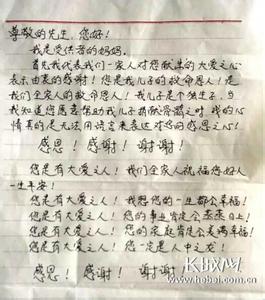 尊敬的先生，您好！
我是受供者的妈妈。
首先我代表我们一家人对您献出的大爱之心
表示由衷的感谢！您是我儿子的救命恩人！是
我们全家人的救命恩人！我儿子是个独生子，当
我知道您愿意帮助我儿子捐献骨髓之时，我的心
情真的是无法用语言来表达对您的感恩之心！
感恩！感谢！谢谢！
您是有大爱之人！我们全家人祝福您好人
一生平安！
您是有大爱之人！我想您的一生都会幸福！
您是有大爱之人！您的事业肯定会蒸蒸日上！
您是有大爱之人！您的家庭肯定会美满幸福！
您是有大爱之人！您一定是人中之龙！
感恩！感谢！谢谢！
河北网
www.hebei.com.cn